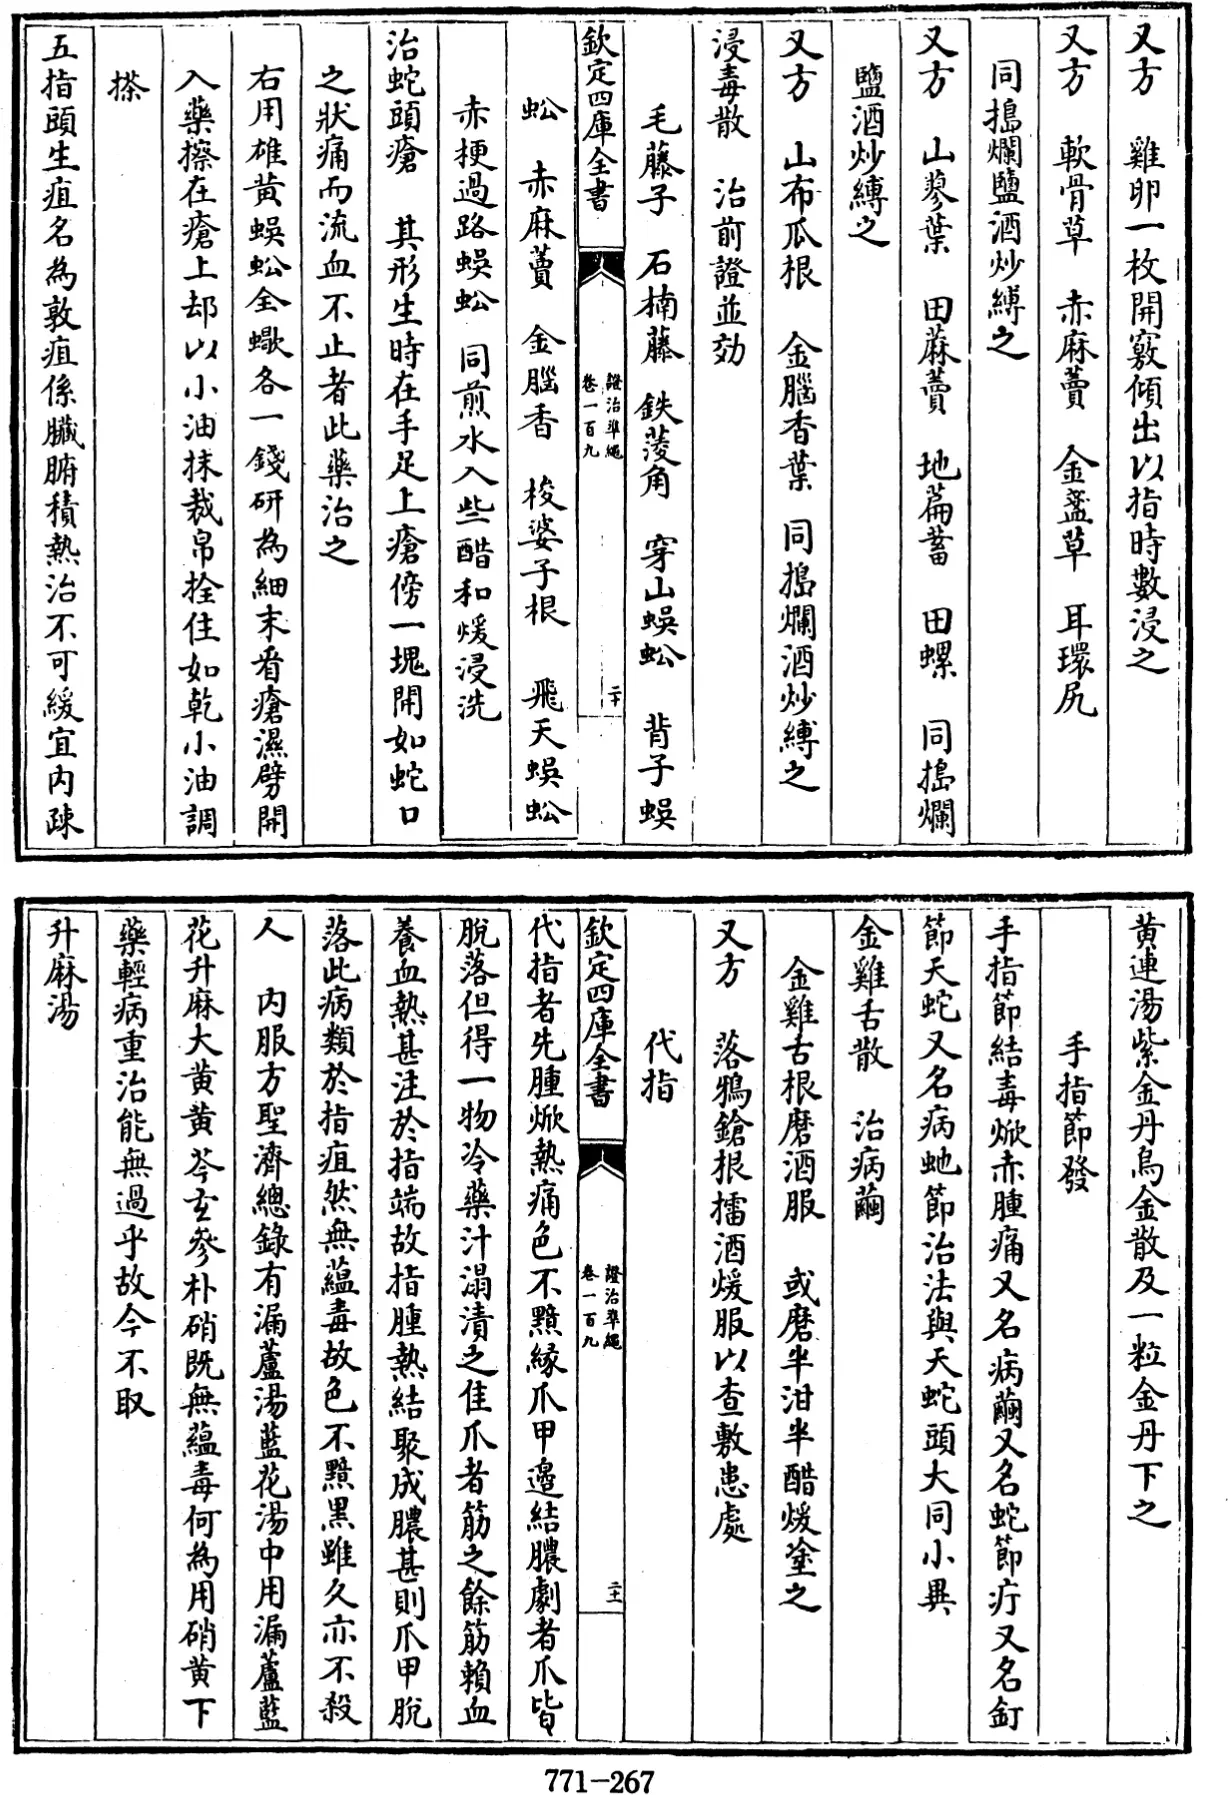 又方 雞卵一枚開竅傾出以指時數浸之
又方 軟骨草 赤麻藚 金盞草 耳環尻
同搗爛鹽酒炒縛之
又方 山蓼葉 田蔴藚 地萹蓄 田螺 同搗爛
鹽酒炒縛之
又方 山布瓜根 金腦香葉 同搗爛酒炒縛之
浸毒散 治前證並効
毛藤子 石楠藤 鉄菱角 穿山蜈蚣 背子蜈
欽定四庫全書 證治準繩 卷一百九 二十
蚣 赤麻藚 金腦香 梭婆子根 飛天蜈蚣
赤梗過路蜈蚣 同煎水入些醋和煖浸洗
治蛇頭瘡 其形生時在手足上瘡傍一塊開如蛇口
之狀痛而流血不止者此藥治之
右用雄黃蜈蚣全蠍各一錢研為細末看瘡濕劈開
入藥擦在瘡上却以小油抹裁帛拴住如乾小油調
搽
五指頭生疽名為敦疽係臟腑積熱治不可緩宜内疎
黃連湯紫金丹烏金散及一粒金丹下之
手指節發
手指節結毒焮赤腫痛又名病繭又名蛇節疔又名釘
節天蛇又名病虵節治法與天蛇頭大同小異
金雞舌散 治病繭
金雞舌根磨酒服 或磨半泔半醋煖塗之
又方 落鴉鎗根擂酒煖服以查敷患處
代指
欽定四庫全書 證治準繩 卷一百九 二十一
代指者先腫焮熱痛色不黯緣爪甲邉結膿劇者爪皆
脫落但得一物冷藥汁溻漬之佳爪者筋之餘筋賴血
養血熱甚注於指端故指腫熱結聚成膿甚則爪甲脫
落此病類於指疽然無蘊毒故色不黯黑雖久亦不殺
人 内服方聖濟總錄有漏蘆湯藍花湯中用漏蘆藍
花升麻大黃黃芩玄參朴硝既無蘊毒何為用硝黃下
藥輕病重治能無過乎故今不取
升麻湯
771-267